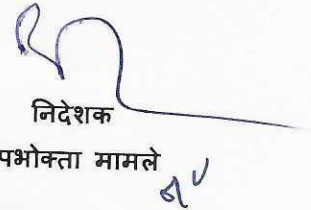 निदेशक
पभोक्ता मामले